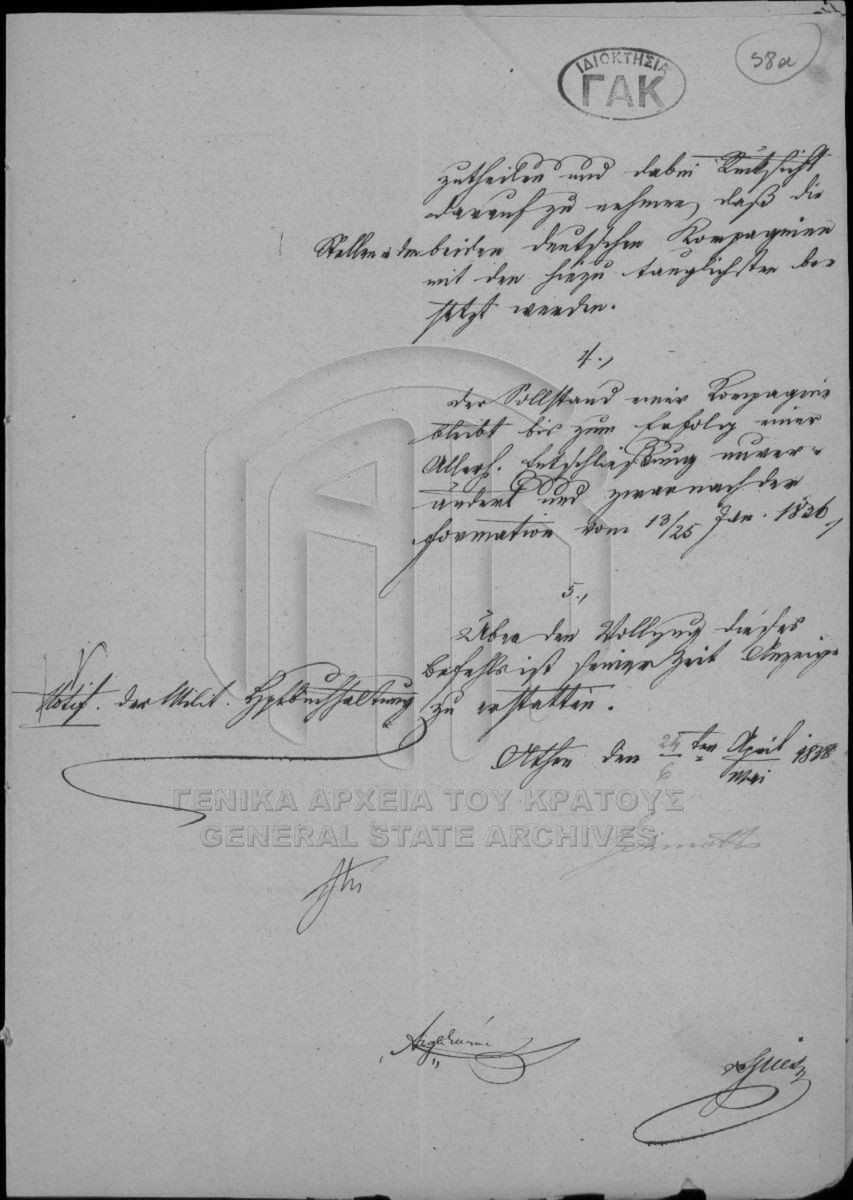 58a
ΙΔΙΟΚΤΗΣΙΑ
ΓΑΚ
zutheilen und dabei Rücksicht
darauf zu nehmen, daß die
Stellen in den beiden deutschen Kompagnien
mit den hiezu tauglichsten be-
setzt werden.
4.,
Der Sollstand einer Kompagnie
bleibt bis zum Erfolg einer
Allerh. Entschließung unver-
ändert und zwar nach der
Formation vom 13/25 Jan. 1836,
5.,
Über den Vollzug dieses
Befehls ist seiner Zeit Anzeige
Notif. der Milit. Hptbuchhaltung
zu erstatten.
Athen den 24/6 ten April/Mai 1838
ΓΕΝΙΚΑ ΑΡΧΕΙΑ ΤΟΥ ΚΡΑΤΟΥΣ
GENERAL STATE ARCHIVES